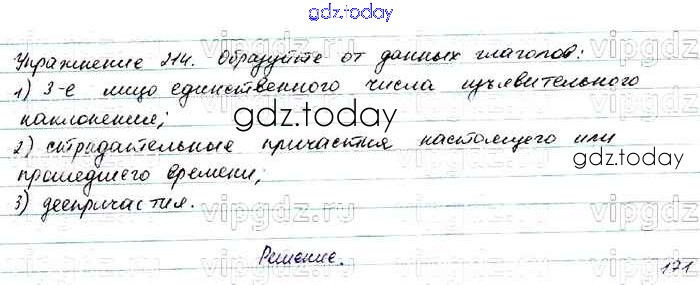 gdz.today
Упражнение 214. Образуйте от данных глаголов:
1) 3-е лицо единственного числа изъявительного
наклонения;
gdz.today
2) страдательные причастия настоящего или
gdz.today
прошедшего времени;
3) деепричастия.
Решение.
171
vipgdz.ru